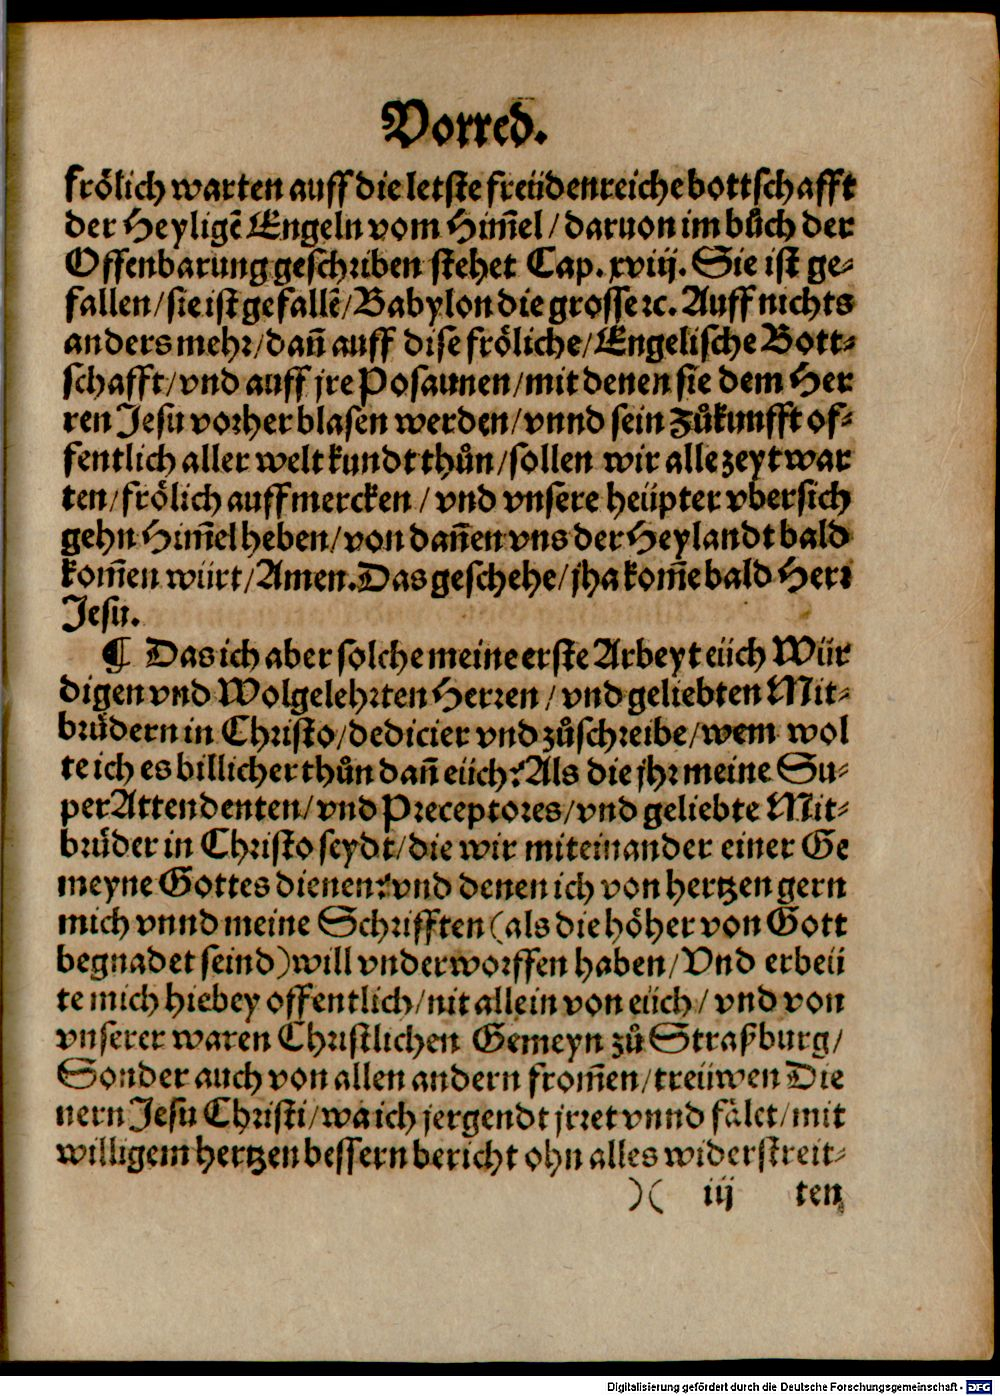 Vorred.
frölich warten auff die letste freüdenreiche bottschafft
der Heyligē Engeln vom Him̄el / daruon im bůch der
Offenbarung geschriben stehet Cap. xviij. Sie ist ge-
fallen / sie ist gefallē / Babylon die grosse ꝛc. Auff nichts
anders mehr / dañ auff dise fröliche / Engelische Bott-
schafft / vnd auff jre Posaunen / mit denen sie dem Her
ren Jesu vorher blasen werden / vnnd sein zůkunfft of-
fentlich aller welt kundt thůn / sollen wir alle zeyt war
ten / frölich auffmercken / vnd vnsere heüpter vbersich
gehn Him̄el heben / von dañen vns der Heylandt bald
kom̄en würt / Amen. Das geschehe / jha kom̄e bald Herr
Jesu.
¶ Das ich aber solche meine erste Arbeyt eüch Wür
digen vnd Wolgelehrten Herren / vnd geliebten Mit-
brüdern in Christo / dedicier vnd zůschreibe / wem wol
te ich es billicher thůn dañ eüch? Als die jhr meine Su-
perAttendenten / vnd Preceptores / vnd geliebte Mit-
brüder in Christo seydt / die wir miteinander einer Ge
meyne Gottes dienen: vnd denen ich von hertzen gern
mich vnnd meine Schrifften (als die höher von Gott
begnadet seind) will vnderworffen haben / Vnd erbeü
te mich hiebey offentlich / nit allein von eüch / vnd von
vnserer waren Christlichen Gemeyn zů Straßburg /
Sonder auch von allen andern from̄en / treüwen Die
nern Jesu Christi / wa ich jergendt jrret vnnd fälet / mit
willigem hertzen bessern bericht ohn alles widerstreit-
)( iij ten
Digitalisierung gefördert durch die Deutsche Forschungsgemeinschaft - DFG